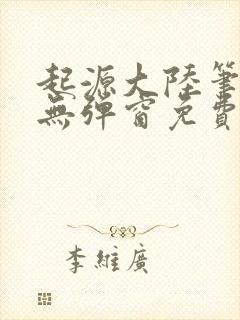 起源大陸筆
無彈窗免費
李維廣